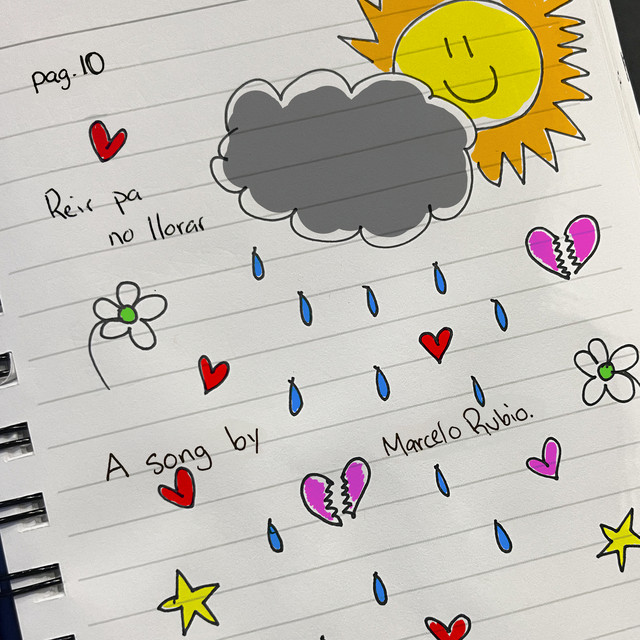 pag.10
Reir pa
no llorar
A song by
Marcelo Rubio.